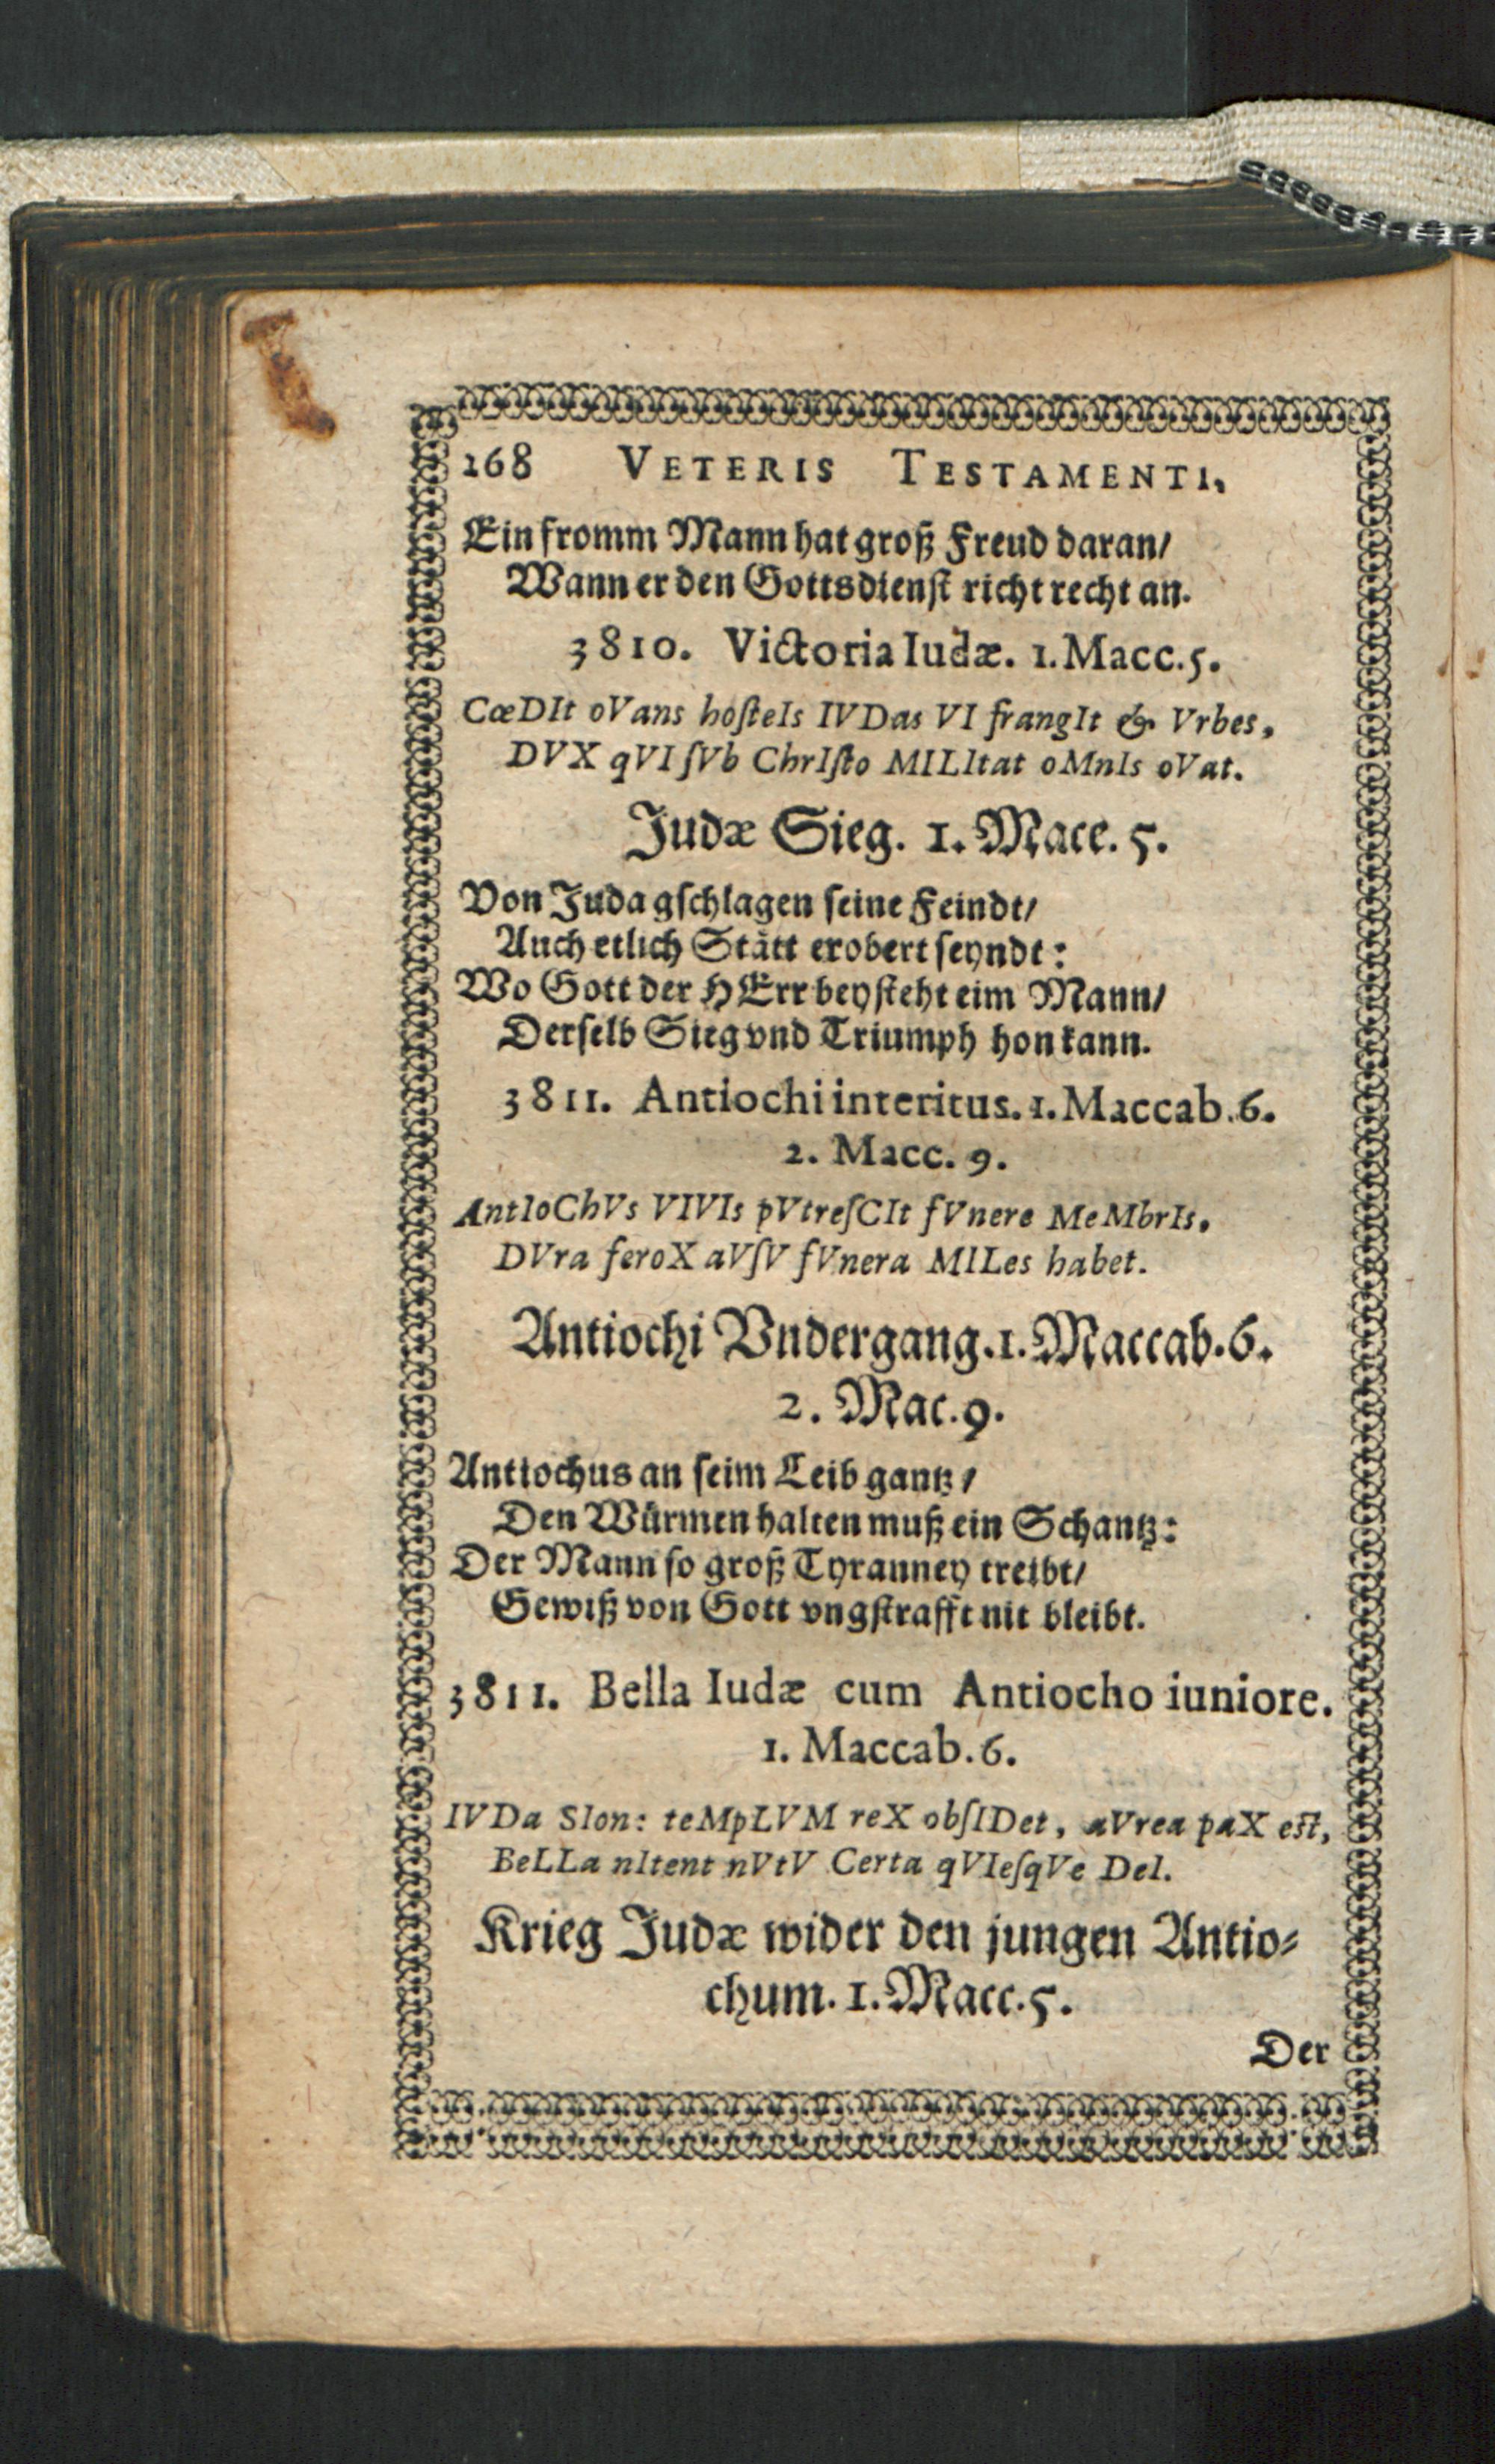 168 VETERIS TESTAMENTI,
Ein fromm Mann hat groß Freud daran/
Wann er den Gottsdienſt richt recht an.
3810. Victoria Iudæ. 1. Macc. 5.
CœDIt oVans hoſteIs IVDas VI frangIt & Vrbes,
DVX qVI ſVb ChrIſto MILItat oMnIs oVat.
Judæ Sieg. 1. Mace. 5.
Von Juda gſchlagen ſeine Feindt/
Auch etlich Stätt erobert ſeyndt:
Wo Gott der HErr beyſteht eim Mann/
Derſelb Sieg vnd Triumph hon kann.
3811. Antiochi interitus. 1. Maccab. 6.
2. Macc. 9.
AntIoChVs VIVIs pVtreſCIt fVnere MeMbrIs,
DVra feroX aVſV fVnera MILes habet.
Antiochi Vndergang. 1. Maccab. 6.
2. Mac. 9.
Antiochus an ſeim Leib gantz/
Den Würmen halten muß ein Schantz:
Der Mann ſo groß Tyranney treibt/
Gewiß von Gott vngſtrafft nit bleibt.
3811. Bella Iudæ cum Antiocho iuniore.
1. Maccab. 6.
IVDa SIon: teMpLVM reX obſIDet, aVrea paX eſt,
BeLLa nItent nVtV Certa qVIeſqVe DeI.
Krieg Judæ wider den jungen Antio⸗
chum. 1. Macc. 5.
Der